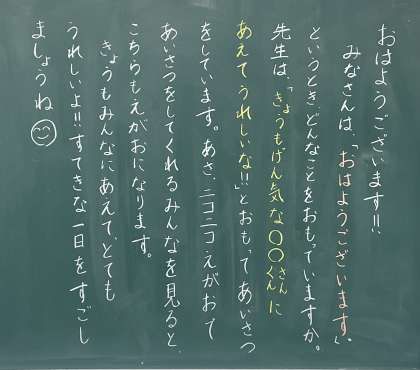 おはようございます!!
みなさんは、「おはようございます。」
というとき、どんなことをおもっていますか。
先生は、「きょうもげん気な〇〇さんくんに
あえてうれしいな!!」とおもってあいさつ
をしています。あさ、ニコニコえがおで
あいさつをしてくれるみんなを見ると、
こちらもえがおになります。
きょうもみんなにあえてとても
うれしいよ!!すてきな一日をすごし
ましょうね